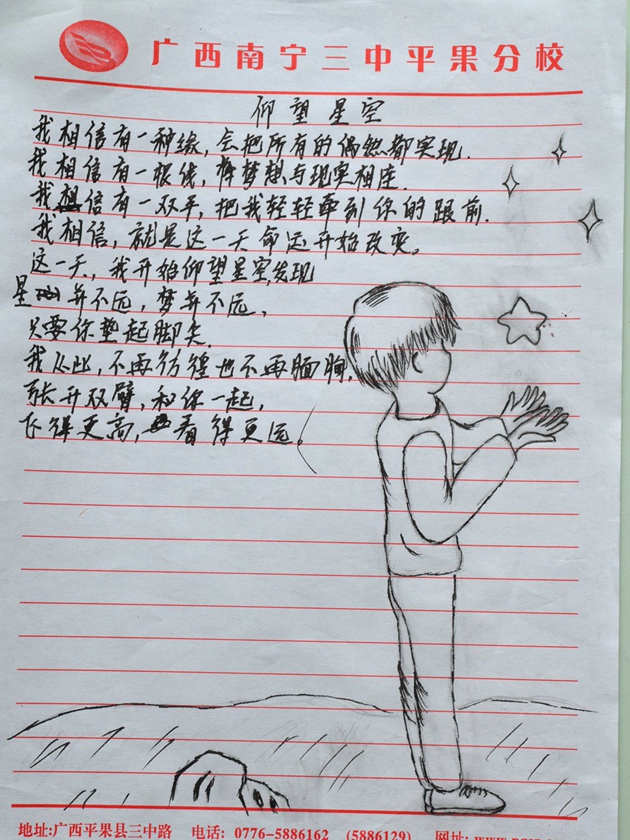 广西南宁三中平果分校
仰望星空
我相信有一种缘，会把所有的偶然都实现．
我相信有一根线，将梦想与现实相连．
我想信有一双手，把我轻轻牵到你的跟前．
我相信，就是这一天命运开始改变。
这一天，我开始仰望星空发现
星 并不远，梦并不远，
只要你垫起脚尖．
我从此，不再彷徨也不再腼腆，
张开双臂，和你一起，
飞得更高，看得更远。
地址:广西平果县三中路 电话: 0776-5886162 (5886129) 网址: